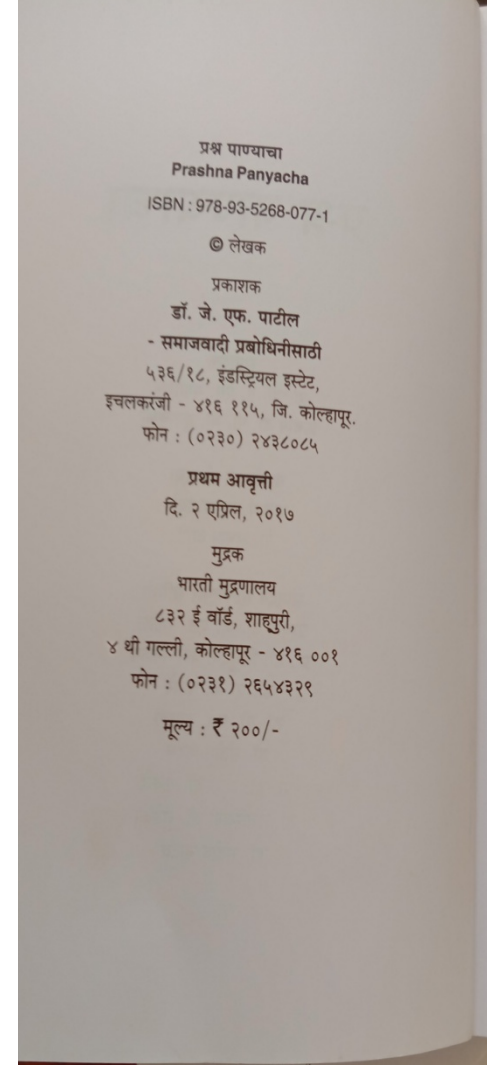 प्रश्न पाण्याचा
Prashna Panyacha
ISBN : 978-93-5268-077-1
© लेखक
प्रकाशक
डॉ. जे. एफ. पाटील
- समाजवादी प्रबोधिनीसाठी
५३६/१८, इंडस्ट्रियल इस्टेट,
इचलकरंजी - ४१६ ११५, जि. कोल्हापूर.
फोन : (०२३०) २४३८०८५
प्रथम आवृत्ती
दि. २ एप्रिल, २०१७
मुद्रक
भारती मुद्रणालय
८३२ ई वॉर्ड, शाहूपुरी,
४ थी गल्ली, कोल्हापूर - ४१६ ००१
फोन : (०२३१) २६५४३२९
मूल्य : ₹ २००/-